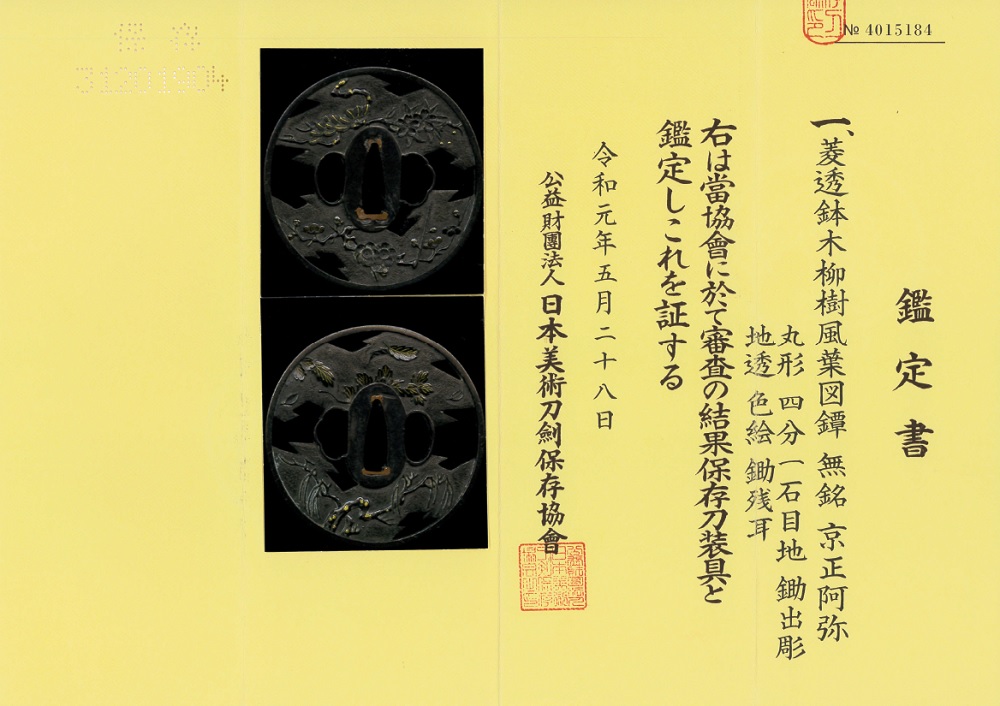 № 4015184
鑑定書
一、菱透鉢木柳樹風葉図鐔 無銘 京正阿弥
丸形 四分一石目地 鋤出彫
地透 色絵 鋤残耳
右は當協會に於て審査の結果保存刀装具と
鑑定しこれを証する
令和元年五月二十八日
公益財團法人 日本美術刀劍保存協會
保存
31201904